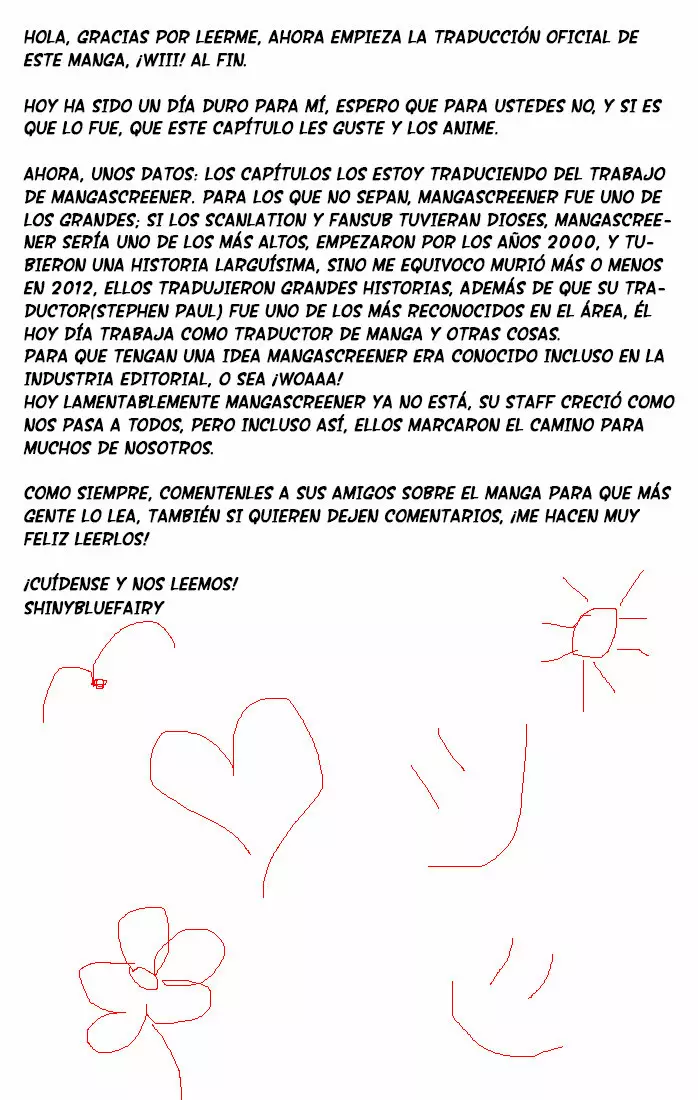 HOLA, GRACIAS POR LEERME, AHORA EMPIEZA LA TRADUCCIÓN OFICIAL DE
ESTE MANGA, ¡WIII! AL FIN.
HOY HA SIDO UN DÍA DURO PARA MÍ, ESPERO QUE PARA USTEDES NO, Y SI ES
QUE LO FUE, QUE ESTE CAPÍTULO LES GUSTE Y LOS ANIME.
AHORA, UNOS DATOS: LOS CAPÍTULOS LOS ESTOY TRADUCIENDO DEL TRABAJO
DE MANGASCREENER. PARA LOS QUE NO SEPAN, MANGASCREENER FUE UNO DE
LOS GRANDES; SI LOS SCANLATION Y FANSUB TUVIERAN DIOSES, MANGASCREE-
NER SERÍA UNO DE LOS MÁS ALTOS, EMPEZARON POR LOS AÑOS 2000, Y TU-
BIERON UNA HISTORIA LARGUÍSIMA, SINO ME EQUIVOCO MURIÓ MÁS O MENOS
EN 2012, ELLOS TRADUJIERON GRANDES HISTORIAS, ADEMÁS DE QUE SU TRA-
DUCTOR(STEPHEN PAUL) FUE UNO DE LOS MÁS RECONOCIDOS EN EL ÁREA, ÉL
HOY DÍA TRABAJA COMO TRADUCTOR DE MANGA Y OTRAS COSAS.
PARA QUE TENGAN UNA IDEA MANGASCREENER ERA CONOCIDO INCLUSO EN LA
INDUSTRIA EDITORIAL, O SEA ¡WOAAA!
HOY LAMENTABLEMENTE MANGASCREENER YA NO ESTÁ, SU STAFF CRECIÓ COMO
NOS PASA A TODOS, PERO INCLUSO ASÍ, ELLOS MARCARON EL CAMINO PARA
MUCHOS DE NOSOTROS.
COMO SIEMPRE, COMENTENLES A SUS AMIGOS SOBRE EL MANGA PARA QUE MÁS
GENTE LO LEA, TAMBIÉN SI QUIEREN DEJEN COMENTARIOS, ¡ME HACEN MUY
FELIZ LEERLOS!
¡CUÍDENSE Y NOS LEEMOS!
SHINYBLUEFAIRY